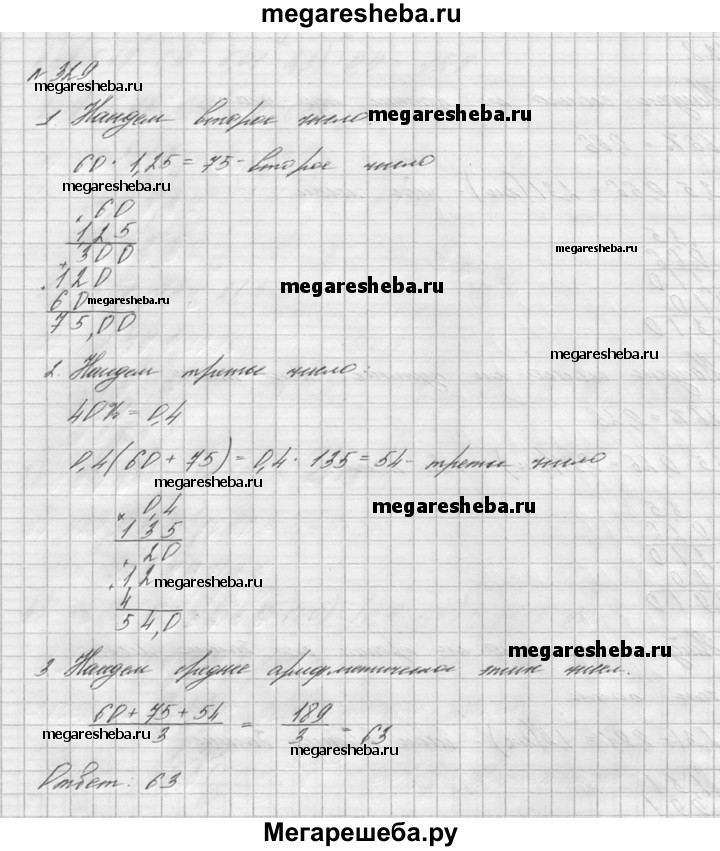 megaresheba.ru
№ 329
megaresheba.ru
1 Найдем второе число megaresheba.ru
60 · 1,25 = 75 - второе число
megaresheba.ru
× 60
1,25
megaresheba.ru
+ 300
megaresheba.ru
120
60 megaresheba.ru
75,00
megaresheba.ru
2. Найдем третье число:
40% = 0,4
0,4(60 + 75) = 0,4 · 135 = 54 - третье число
megaresheba.ru
× 0,4
megaresheba.ru
135
+ 20
12 megaresheba.ru
4
54,0
megaresheba.ru
3 Найдем среднее арифметическое этих чисел.
megaresheba.ru
60 + 75 + 54 / 3 = 189 / 3 = 63
megaresheba.ru
megaresheba.ru
Ответ: 63
Мегарешеба.ру